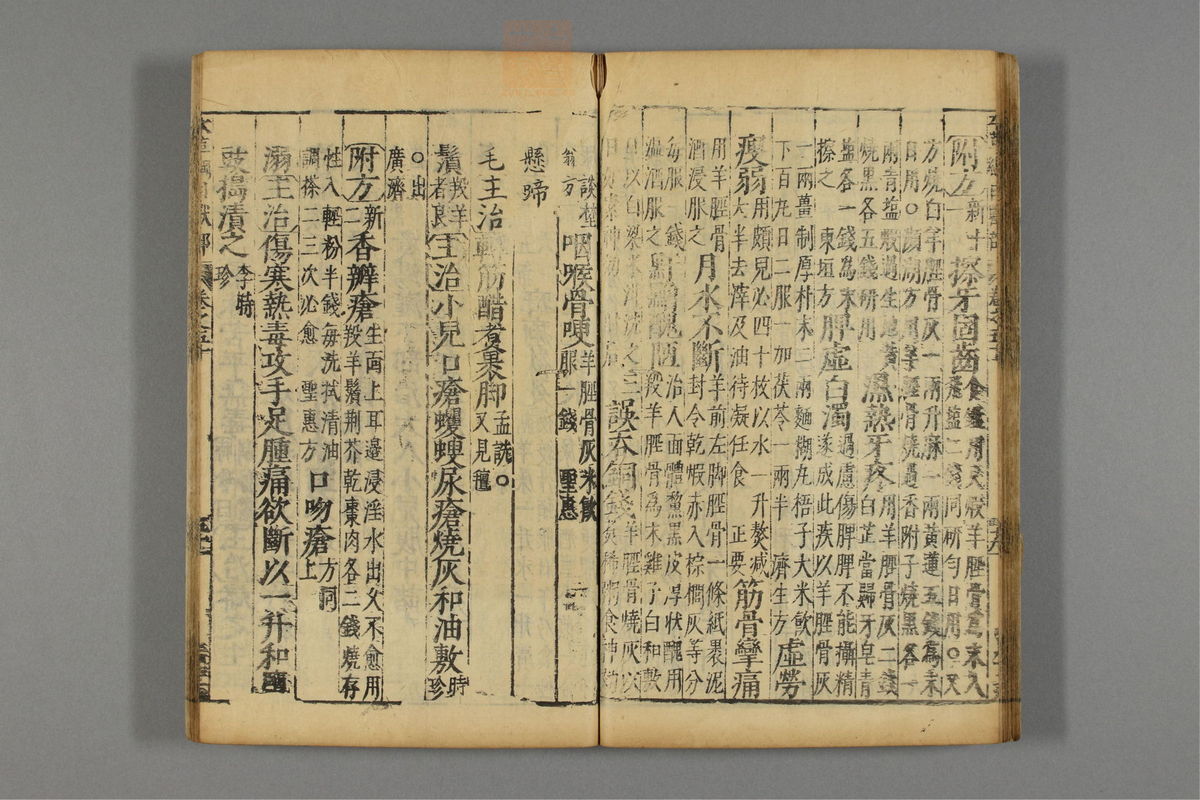 附方新十擦牙固齒食鑑用火煅羊脛骨為末入
飛鹽二錢同研勻日用○又
方燒白羊脛骨灰一兩升麻一兩黃連五錢為末
日用○瀕湖方用羊脛骨燒過香附子燒黑各一
兩青鹽煅過生地黃
燒黑各五錢研用濕熱牙疼用羊脛骨灰二錢
白芷當歸牙皂青
鹽各一錢為末
擦之 東垣方脾虛白濁過慮傷脾脾不能攝精
遂成此疾以羊脛骨灰
一兩薑制厚朴末二兩麵糊丸梧子大米飲
下百丸日二服一加茯苓一兩半 濟生方虛勞
瘦弱用頗見必四十枚以水一升熬減
大半去滓及油待凝任食 正要筋骨攣痛
用羊脛骨
酒浸服之月水不斷羊前左脚脛骨一條紙裹泥
封令乾煅赤入棕櫚灰等分
每服一錢
溫酒服之䵟醜陋治人面體黧黑皮厚狀醜用
羖羊脛骨為末雞子白和敷
旦以白粱米泔洗之三
誤吞銅錢羊脛骨燒灰以
煮稀粥食神効
談埜
翁方咽喉骨哽羊脛骨灰米飲
服一錢 聖惠
懸蹄
毛主治轉筋醋煮裹脚孟詵○
又見氊
鬚羖羊
者良主治小兒口瘡蠼螋尿瘡燒灰和油敷時珍
○出
廣濟
附方新二香瓣瘡生面上耳邊浸淫水出久不愈用
羖羊鬚荊芥乾棗肉各二錢燒存
性入輕粉半錢每洗拭清油
調搽二三次必愈 聖惠方口吻瘡上
方同
溺主治傷寒熱毒攻手足腫痛欲斷以一升和鹽
豉搗漬之李時
珍